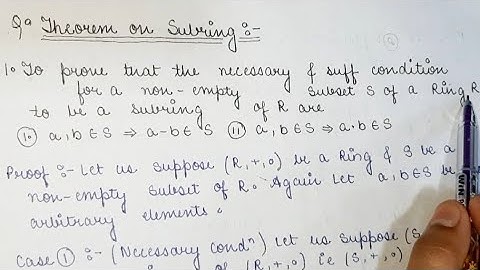 Qº Theorem on Subring :-
1. To prove that the necessary & suff condition
for a non-empty subset S of a Ring R
to be a subring of R are
(i) a,b ∈ S ⇒ a-b ∈ S (ii) a,b ∈ S ⇒ a.b ∈ S
Proof :- Let us suppose (R,+,.) be a Ring & S be a
non-empty subset of R. Again let a,b ∈ S be
arbitrary elements.
Case (1) :- (Necessary condn) Let us suppose (S
of (R,+,.) ie (S,+,.)